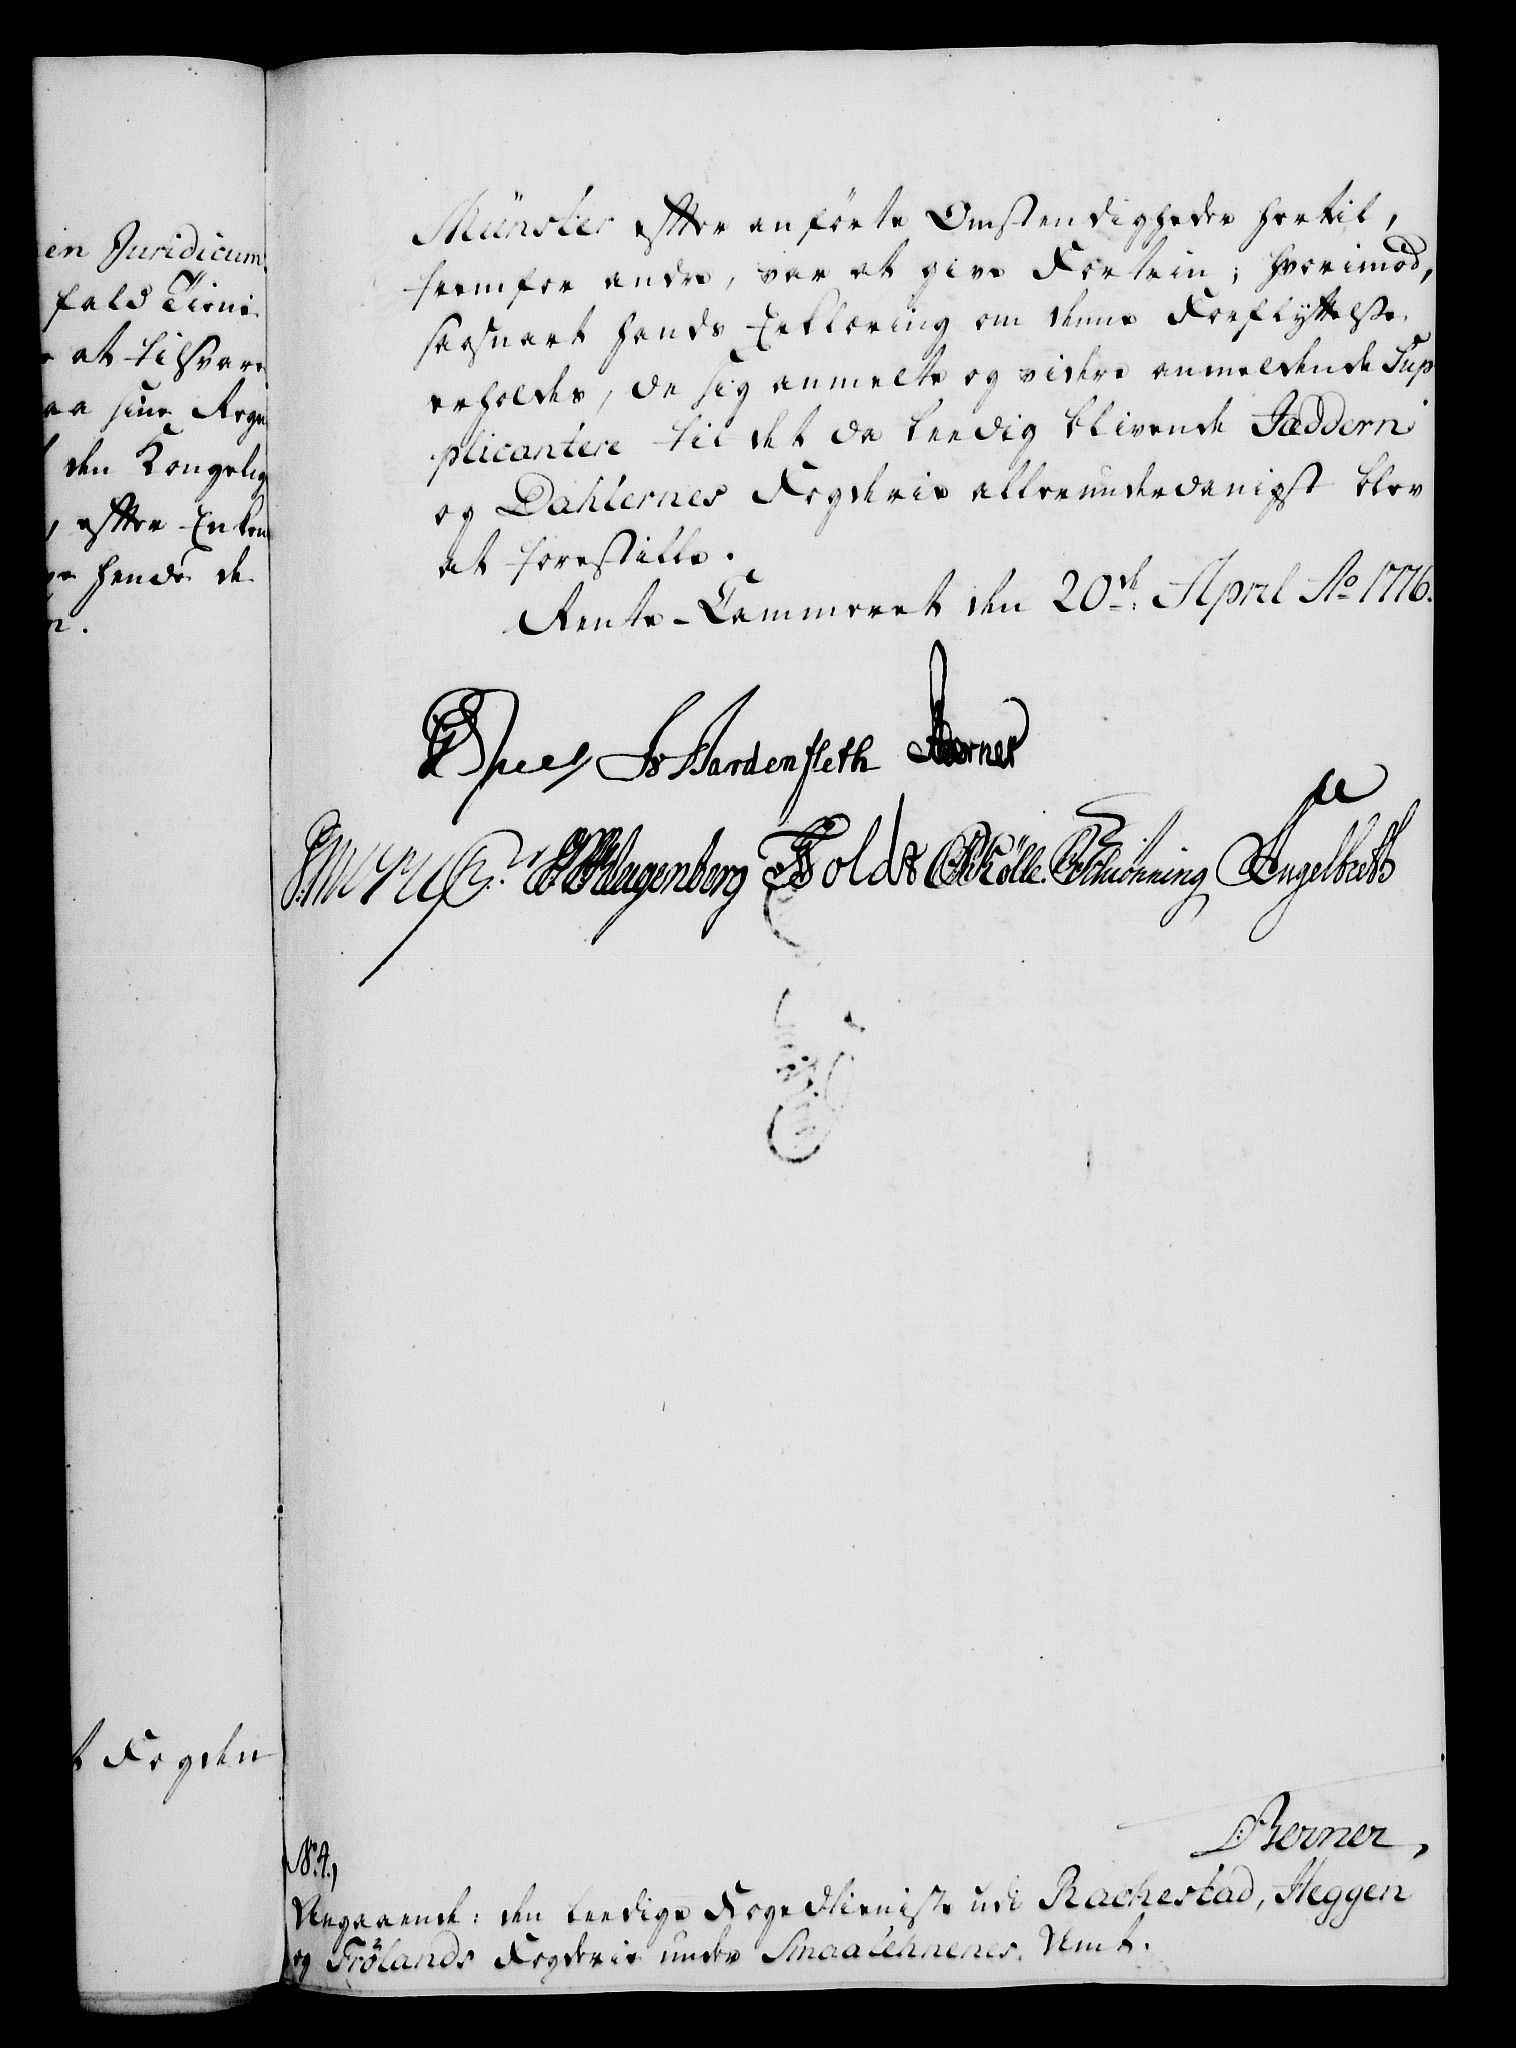 in Juridicum
fald Tieni
at tilsvare
aa sine Regn
den Kongelig
, efter Enken
hends de
t Fogden
Münster efter anförte Omstendigheder hertil,
fremfor andre, var at give Fortrin; hvorimod,
saasnart hands Erklæring om denne Forflyttelse
erholdes, de sig anmelte og videre anmeldende Sup
plicantere til det da leedig blivende Jædderns
og Dahlernes Fogderie allerunderdanigst blev
at forestille.
Rente-Cammeret den 20de April Ao 1776.
JvHardenfleth Berner
Klagenberg Holdt Kölle Schiönning Engelbreth
Berner,
N. 4.,
Angaaende: den leedige Foged Tieniste udi Rachestad, Heggen
og Frölands Fogderie under Smaalehnenes Amt.